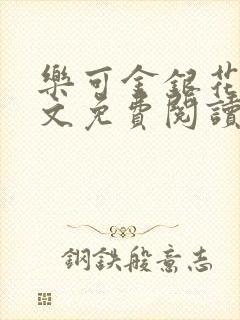 樂可金銀花
文免費閱讀
鋼鉄般意志